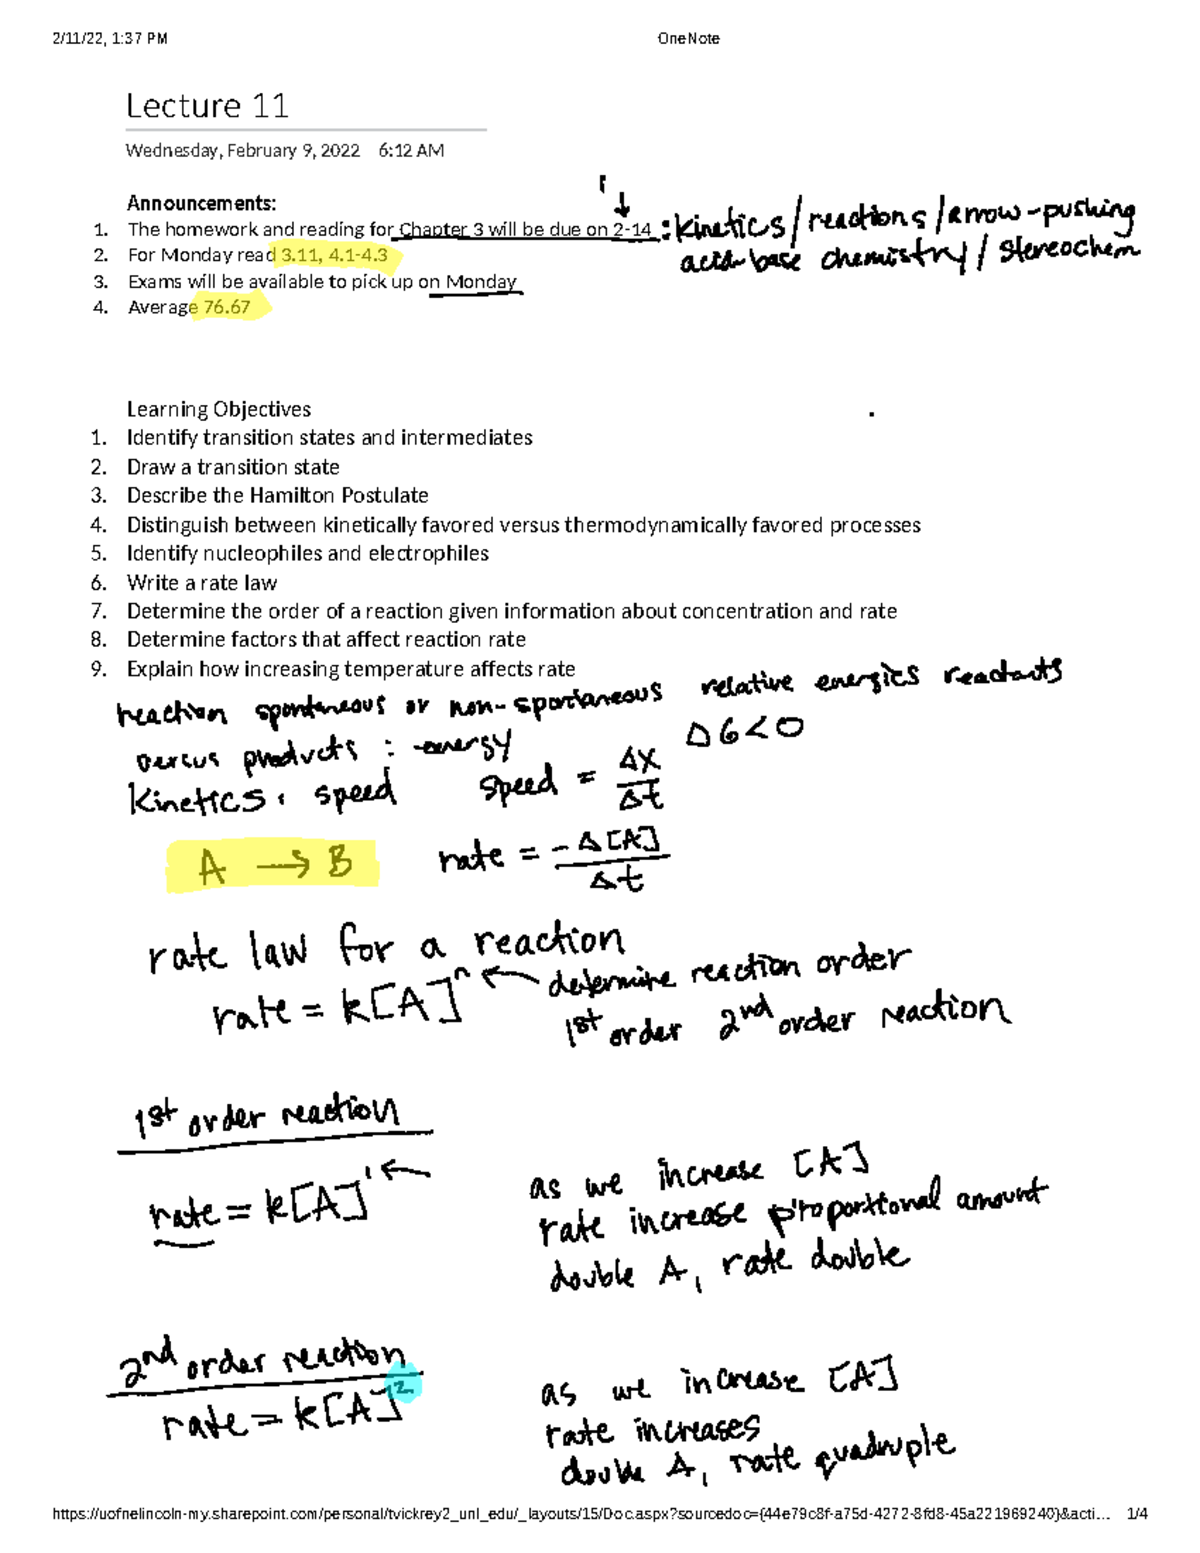 2/11/22, 1:37 PM OneNote
Lecture 11
Wednesday, February 9, 2022 6:12 AM
Announcements:
1. The homework and reading for Chapter 3 will be due on 2-14 : kinetics/reactions/arrow-pushing
acid-base chemistry/stereochem
2. For Monday read 3.11, 4.1-4.3
3. Exams will be available to pick up on Monday
4. Average 76.67
Learning Objectives
1. Identify transition states and intermediates
2. Draw a transition state
3. Describe the Hamilton Postulate
4. Distinguish between kinetically favored versus thermodynamically favored processes
5. Identify nucleophiles and electrophiles
6. Write a rate law
7. Determine the order of a reaction given information about concentration and rate
8. Determine factors that affect reaction rate
9. Explain how increasing temperature affects rate
reaction spontaneous or non-spontaneous relative energies reactants
versus products : energy ΔG<0
Kinetics: speed speed = Δx/Δt
A → B rate = -Δ[A]/Δt
rate law for a reaction
rate = k[A]ⁿ ← determine reaction order
1st order 2nd order reaction
1st order reaction
rate = k[A]¹ ←
as we increase [A]
rate increase proportional amount
double A, rate double
2nd order reaction
rate = k[A]²
as we increase [A]
rate increases
double A, rate quadruple
https://uofnelincoln-my.sharepoint.com/personal/tvickrey2_unl_edu/_layouts/15/Doc.aspx?sourcedoc={44e79c8f-a75d-4272-8fd8-45a221969240}&acti... 1/4